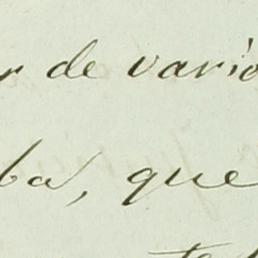 r de vario
ba, que